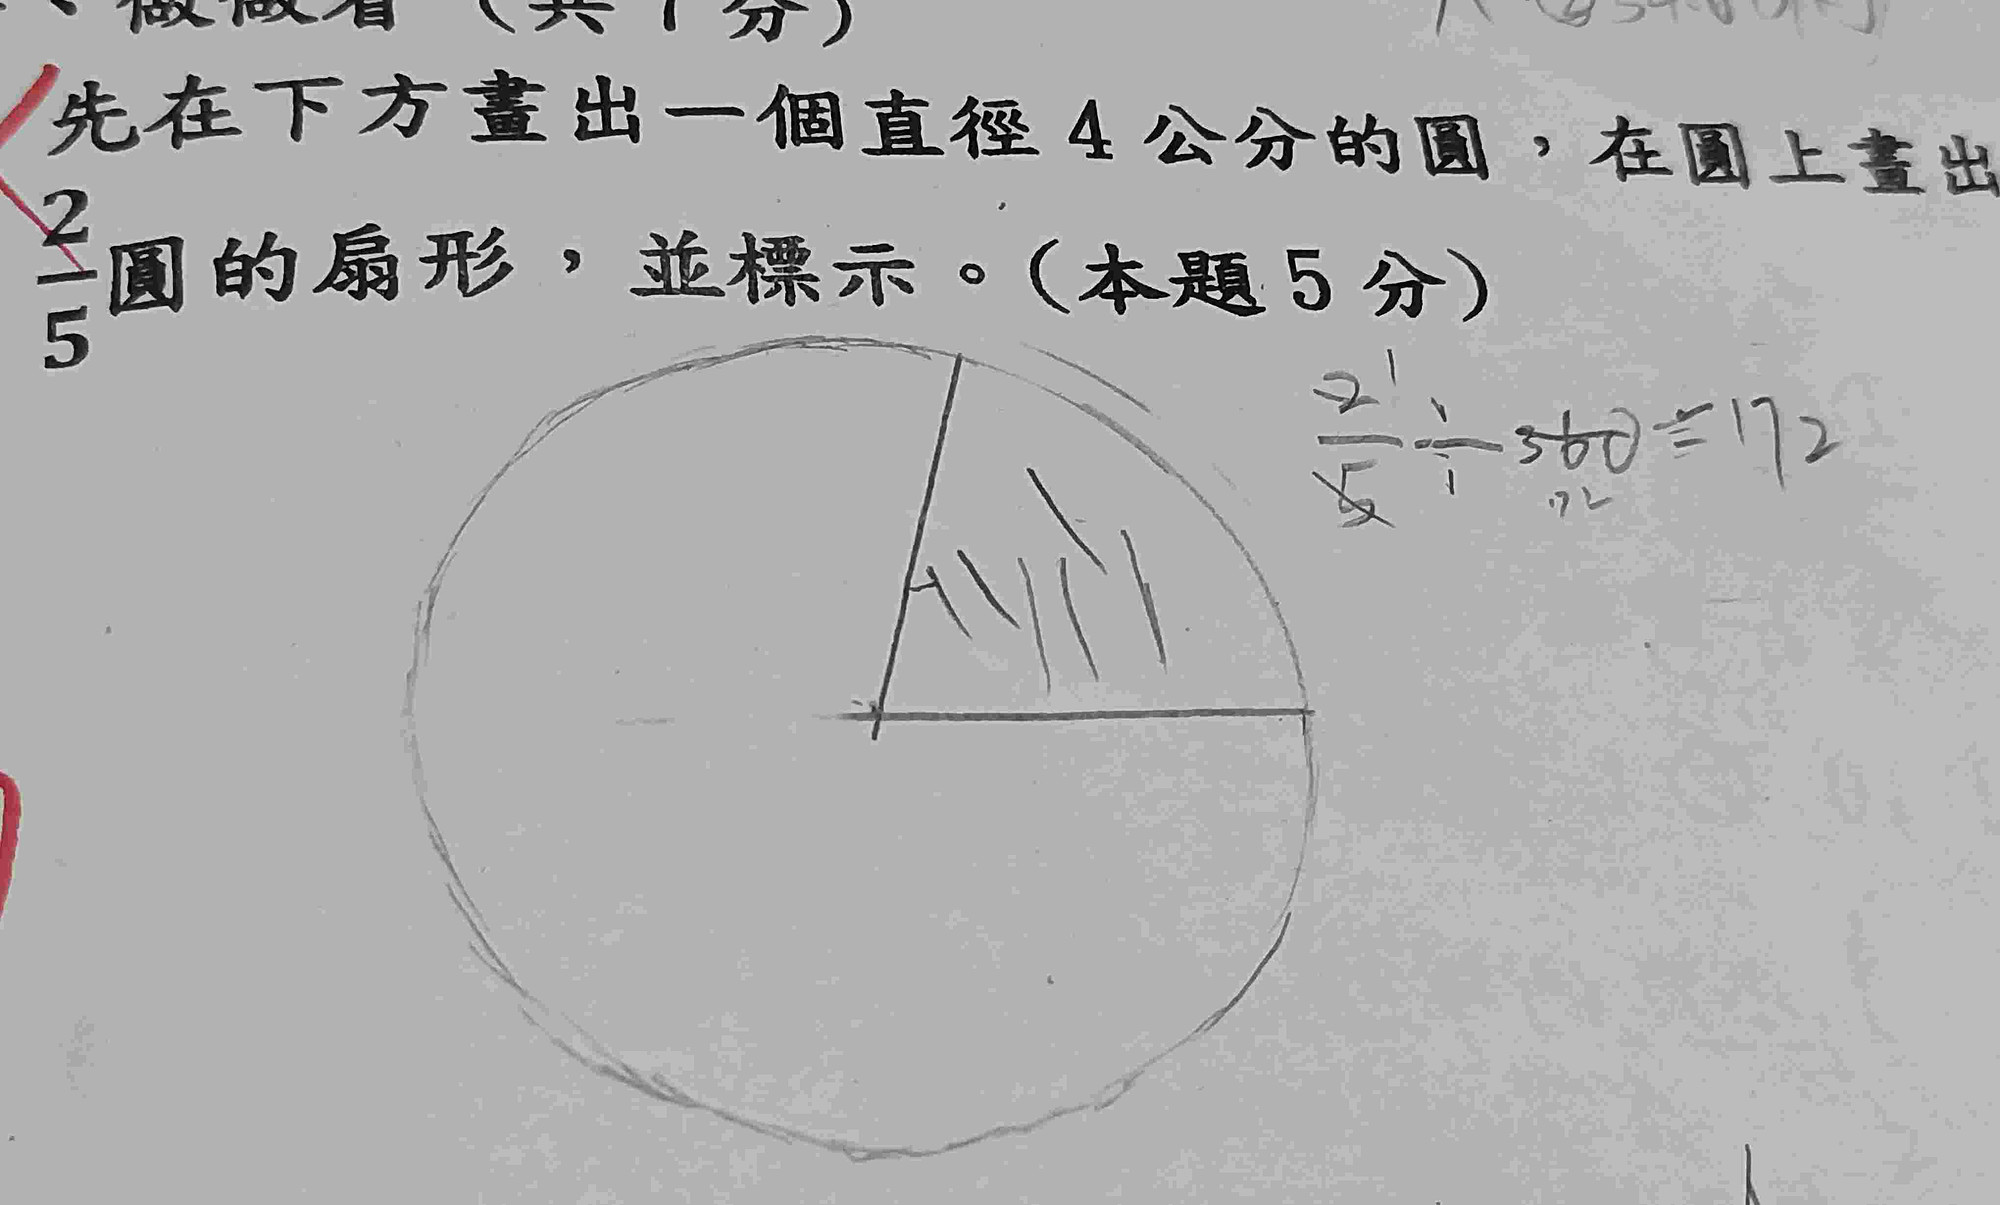 、做做看(共1分)
先在下方畫出一個直徑4公分的圓,在圓上畫出
2/5圓的扇形,並標示。(本題5分)
2/5 1 ÷ 360 = 172
72